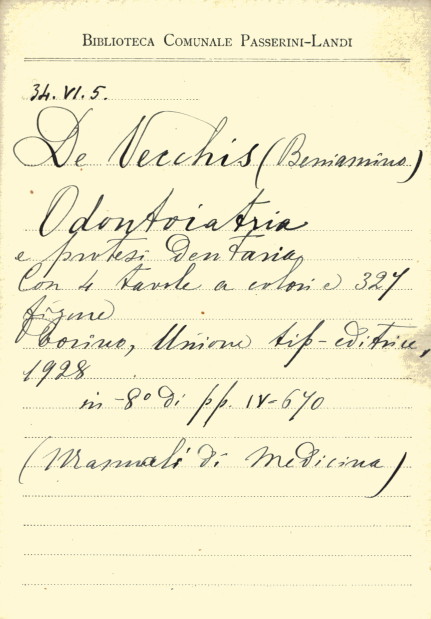 BIBLIOTECA COMUNALE PASSERINI-LANDI
34. VI. 5.
De Vecchis (Beniamino)
Odontoiatria
e protesi dentaria
Con 4 tavole a colori e 327
figure
Torino, Unione tip-editrice,
1928
in -8° di pp. IV-670
(Manuali di Medicina)